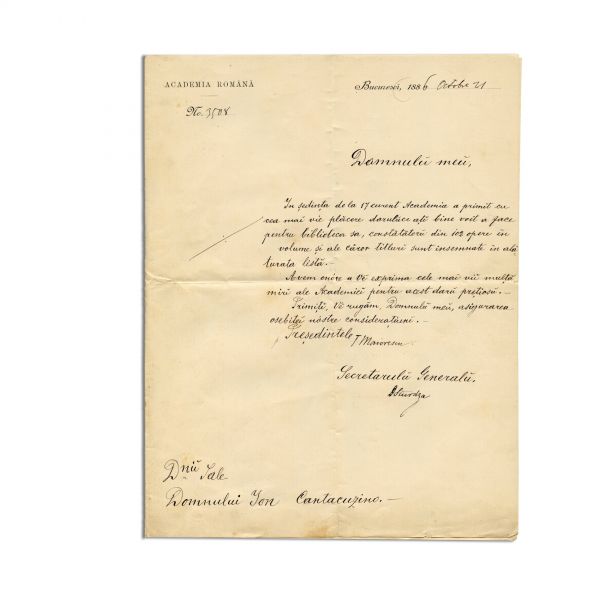 ACADEMIA ROMÂNĂ
Bucuresci, 1886 Octobre 21
No. 3508
Domnulŭ meŭ,
In ședința de la 17 curent Academia a primit cu
cea mai vie plăcere darul ce ați bine voit a face
pentru biblioteca sa, constătătorŭ din 102 opere în
volume și ale căror titluri sunt însemnate în ală
turata listă.
Avem onóre a Vĕ exprima cele mai viĭ mulță
miri ale Academiei pentru acest darŭ prețiosŭ. —
Primiți, Vĕ rugăm, Domnulŭ meŭ, asigurarea
osebiteĭ nóstre considerațiunĭ. —
Președintele T Maiorescu
Secretarulŭ Generalŭ,
DSturdza
Dniĭ Sale
Domnului Ion Cantacuzino. —